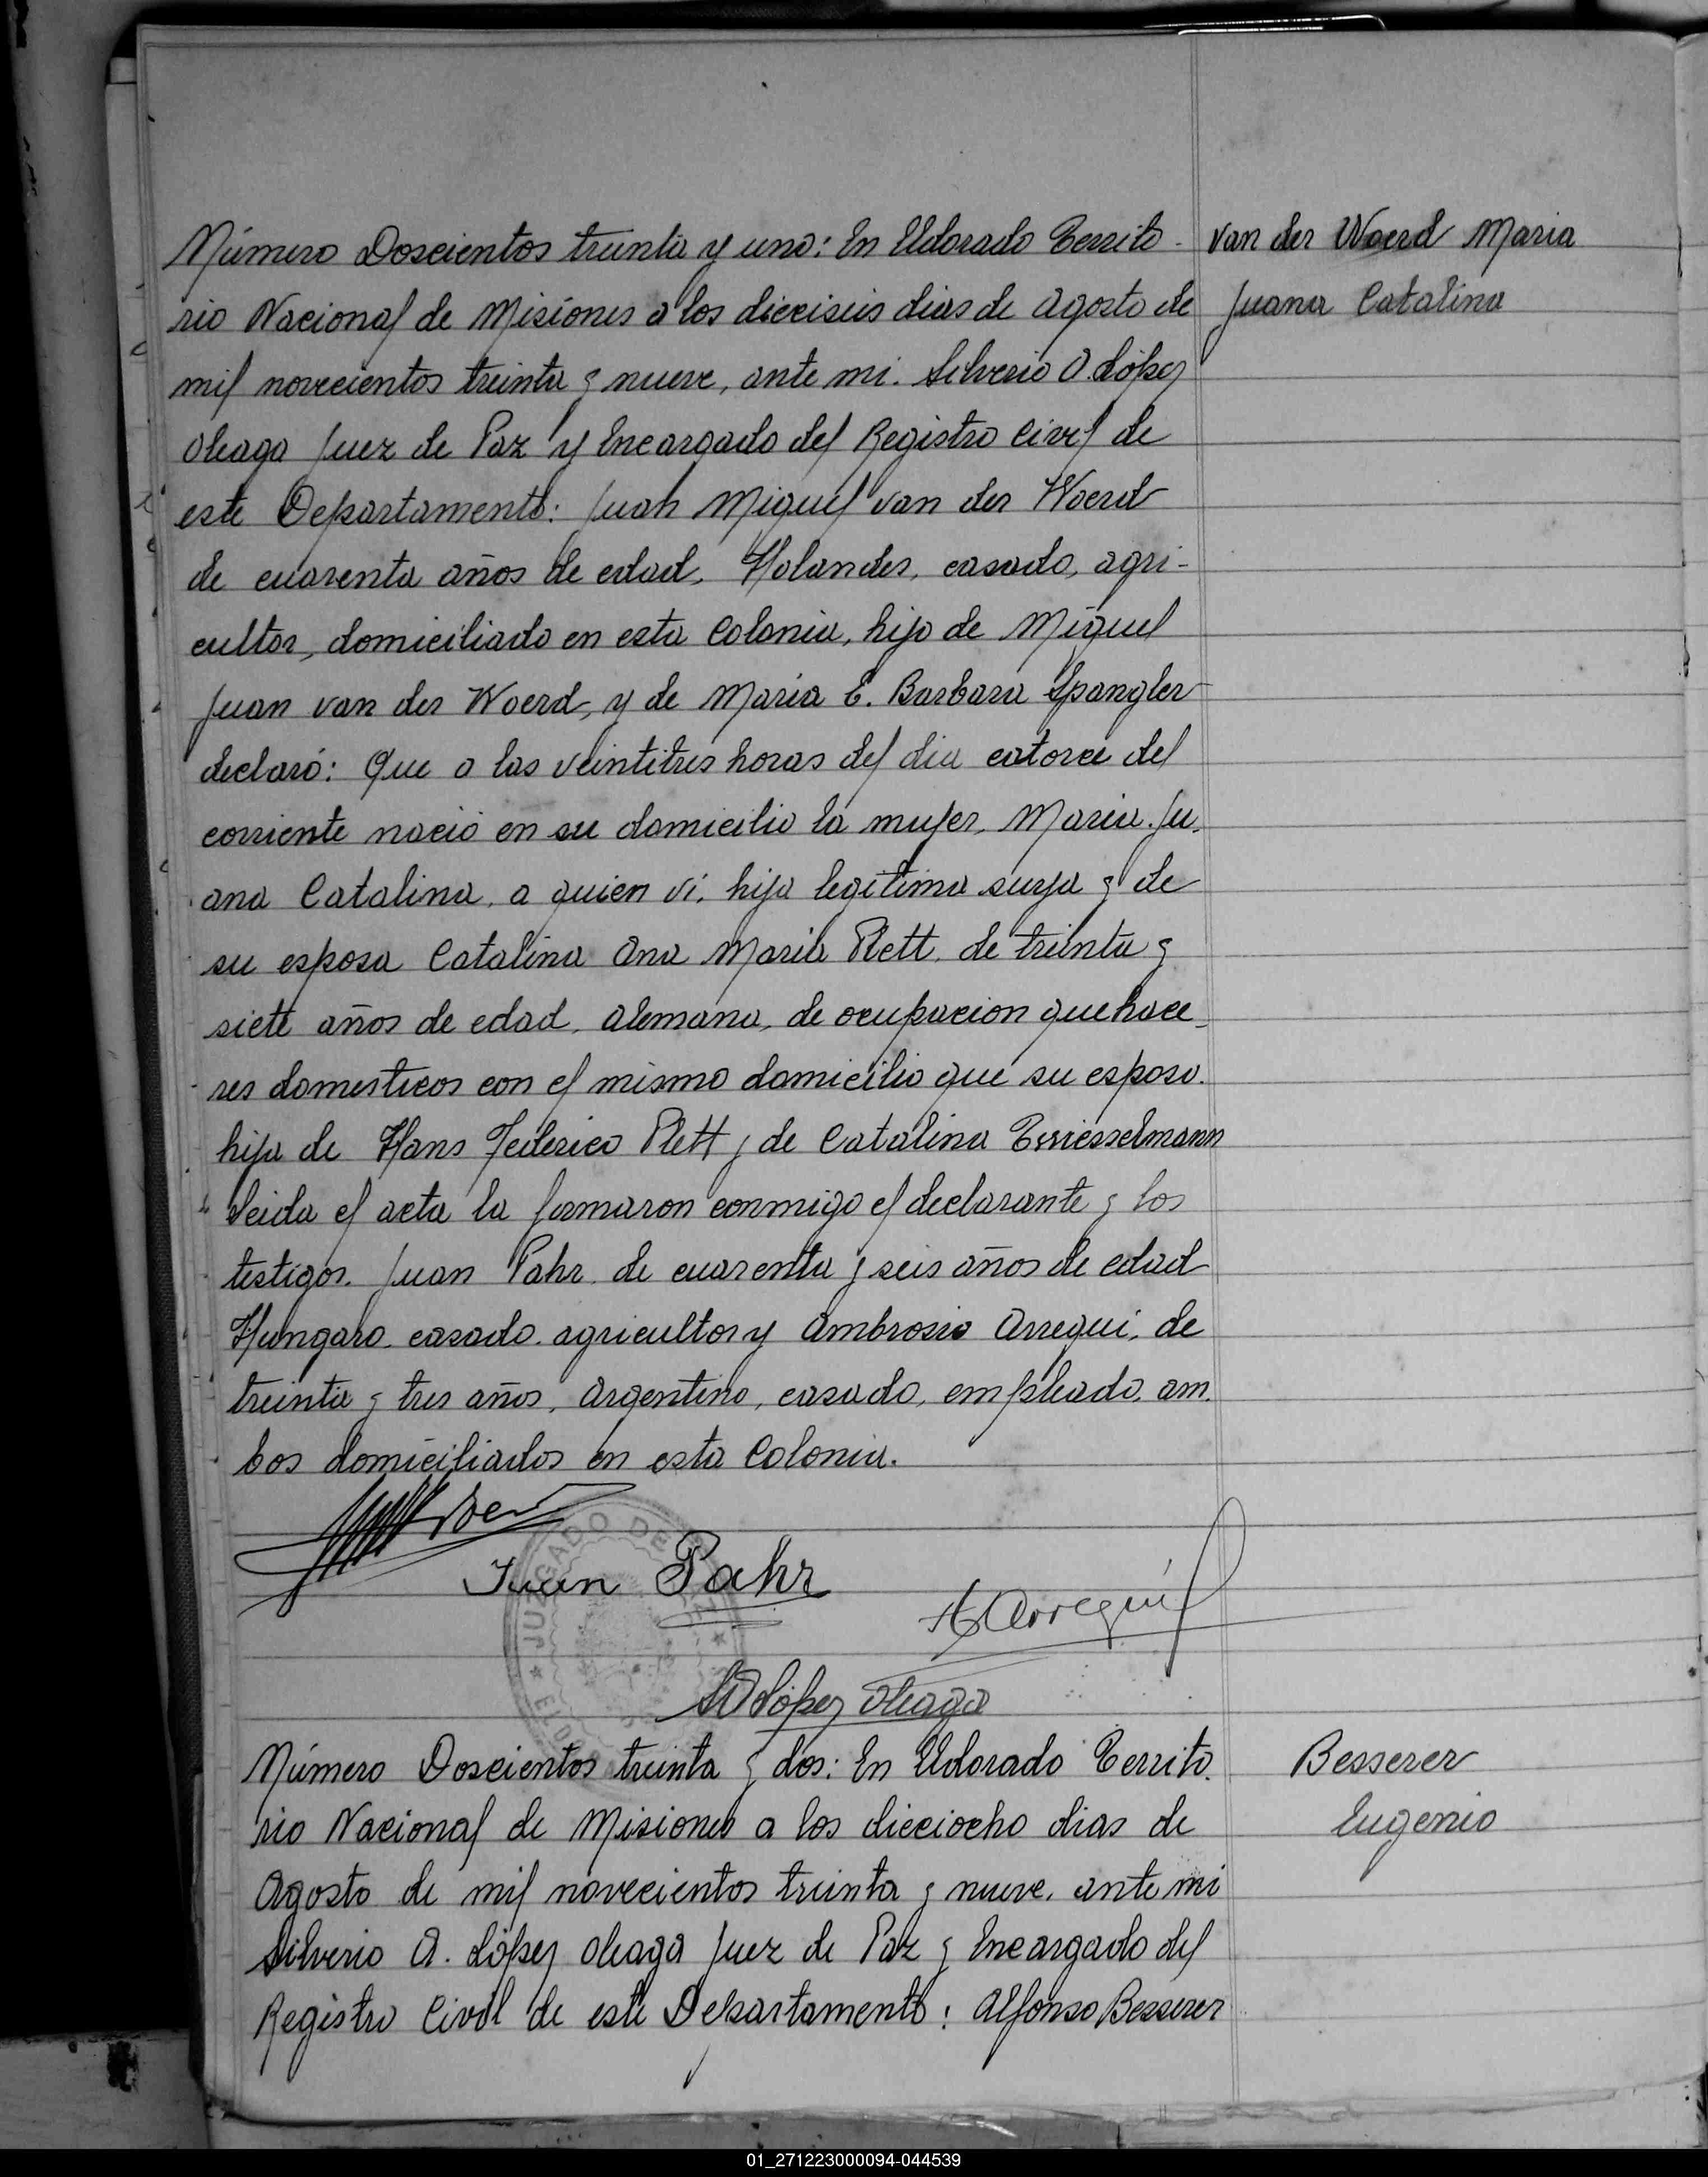 Número Doscientos treinta y uno: En Eldorado Territo-
rio Nacional de Misiones a los dieciseis dias de Agosto de
mil novecientos treinta y nueve, ante mi. Silverio A. López
Oleaga Juez de Paz y Encargado del Registro Civil de
este Departamento: Juan Miguel van der Woerd
de cuarenta años de edad, Holandes, casado, agri-
cultor, domiciliado en esta Colonia, hijo de Miguel
Juan van der Woerd, y de Maria E. Barbara Spangler
declaró: Que a las veintitres horas del dia catorce del
corriente nació en su domicilio la mujer, Maria Ju-
ana Catalina, a quien vi, hija legitima suya y de
su esposa Catalina Ana Maria Plett, de treinta y
siete años de edad, Alemana, de ocupacion quehace-
res domesticos con el mismo domicilio que su esposo.
hija de Hans Federico Plett y de Catalina
Leida el acta la firmaron conmigo el declarante y los
testigos. Juan Pahr de cuarenta y seis años de edad
Hungaro, casado, agricultor y Ambrosio Arregui, de
treinta y tres años, Argentino, casado, empleado, am-
bos domiciliados en esta Colonia.
Juan Pahr
A Arregui
SA López Oleaga
JUZGADO DE
van der Woerd Maria
Juana Catalina
Número Doscientos treinta y dos: En Eldorado Territo-
rio Nacional de Misiones a los dieciocho dias de
Agosto de mil novecientos treinta y nueve, ante mi
Silverio A. López Oleaga Juez de Paz y Encargado del
Registro Civil de este Departamento: Alfonso Besserer
Besserer
Eugenio
01_271223000094-044539